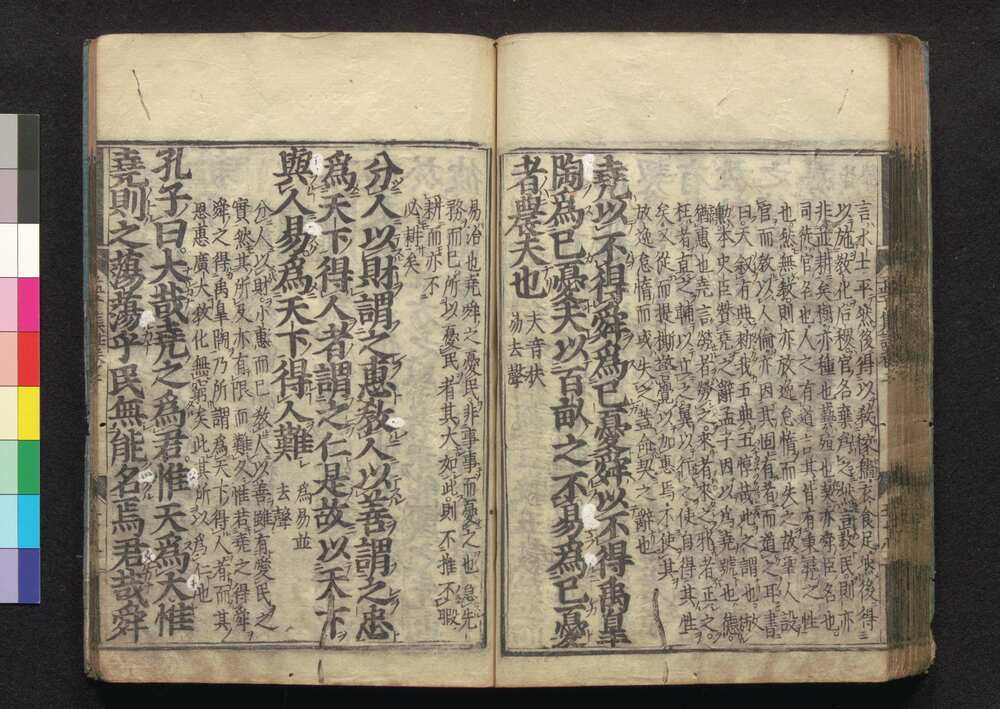 言水土平然後得以教稼穡衣食足然後得
以施教化后稷官名棄爲之然言教民則亦
非並耕矣樹亦種也藝殖也契亦舜臣名也
司徒官名也人之有道言其皆有秉彝之性
也然無教則亦放逸怠惰而失之故聖人設
官而教以人倫亦因其固有者而道之耳書
曰天叙有典勑我五典五惇哉此之謂也放
勲本史臣贊堯之辭孟子因以爲堯號也德
猶惠也堯言勞者勞之來者來之邪者正之
枉者直之輔以立之翼以行之使自得其性
矣又從而提撕警覺以加惠焉不使其
放逸怠惰而或失之蓋命契之辭也
堯以不得舜爲已憂舜以不得禹皐
陶爲已憂夫以百畝之不易爲已憂
者農夫也 夫音扶
易去聲
易治也堯舜之憂民非事事而憂之也急先
務而已所以憂民者其大如此則不惟不暇
耕而亦不
必耕矣
分人以財謂之惠教人以善謂之忠
爲天下得人者謂之仁是故以天下
與人易爲天下得人難 爲易並
去聲
分人以財小惠而已教人以善雖有愛民之
實然其所及亦有限而難久惟若堯之得舜
舜之得禹皐陶乃所謂爲天下得人者而其
恩惠廣大教化無窮矣此其所以爲仁也
孔子曰大哉堯之爲君惟天爲大惟
堯則之蕩蕩乎民無能名焉君哉舜